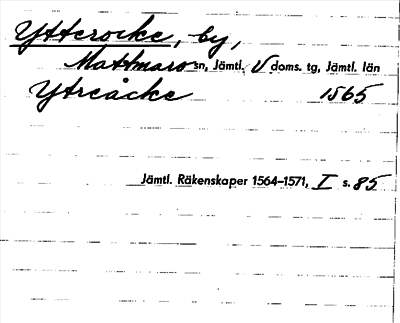 Ytterocke, by,
Mattmar sn, Jämtl. V doms. tg, Jämtl. län
Ytreåcke 1565
Jämtl. Räkenskaper 1564–1571, I s. 85